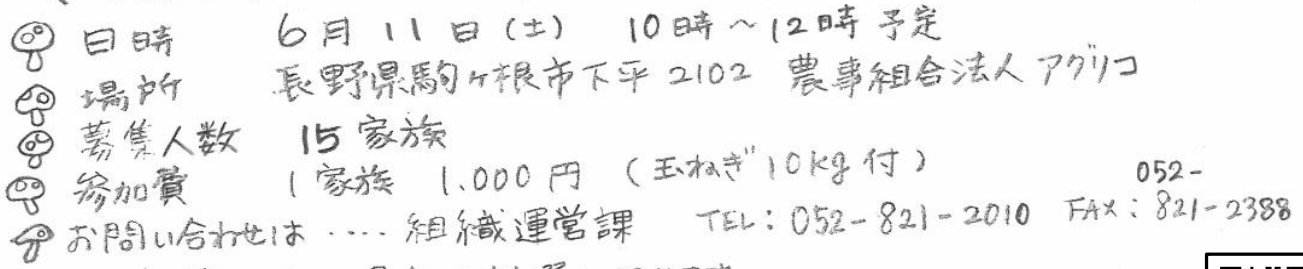 日時 6月11日(土) 10時~12時予定
場所 長野県駒ヶ根市下平2102 農事組合法人アグリコ
募集人数 15家族
参加費 1家族 1.000円 (玉ねぎ10kg付)
お問い合わせは ‥‥ 組織運営課 TEL:052-821-2010 FAX:052-821-2388